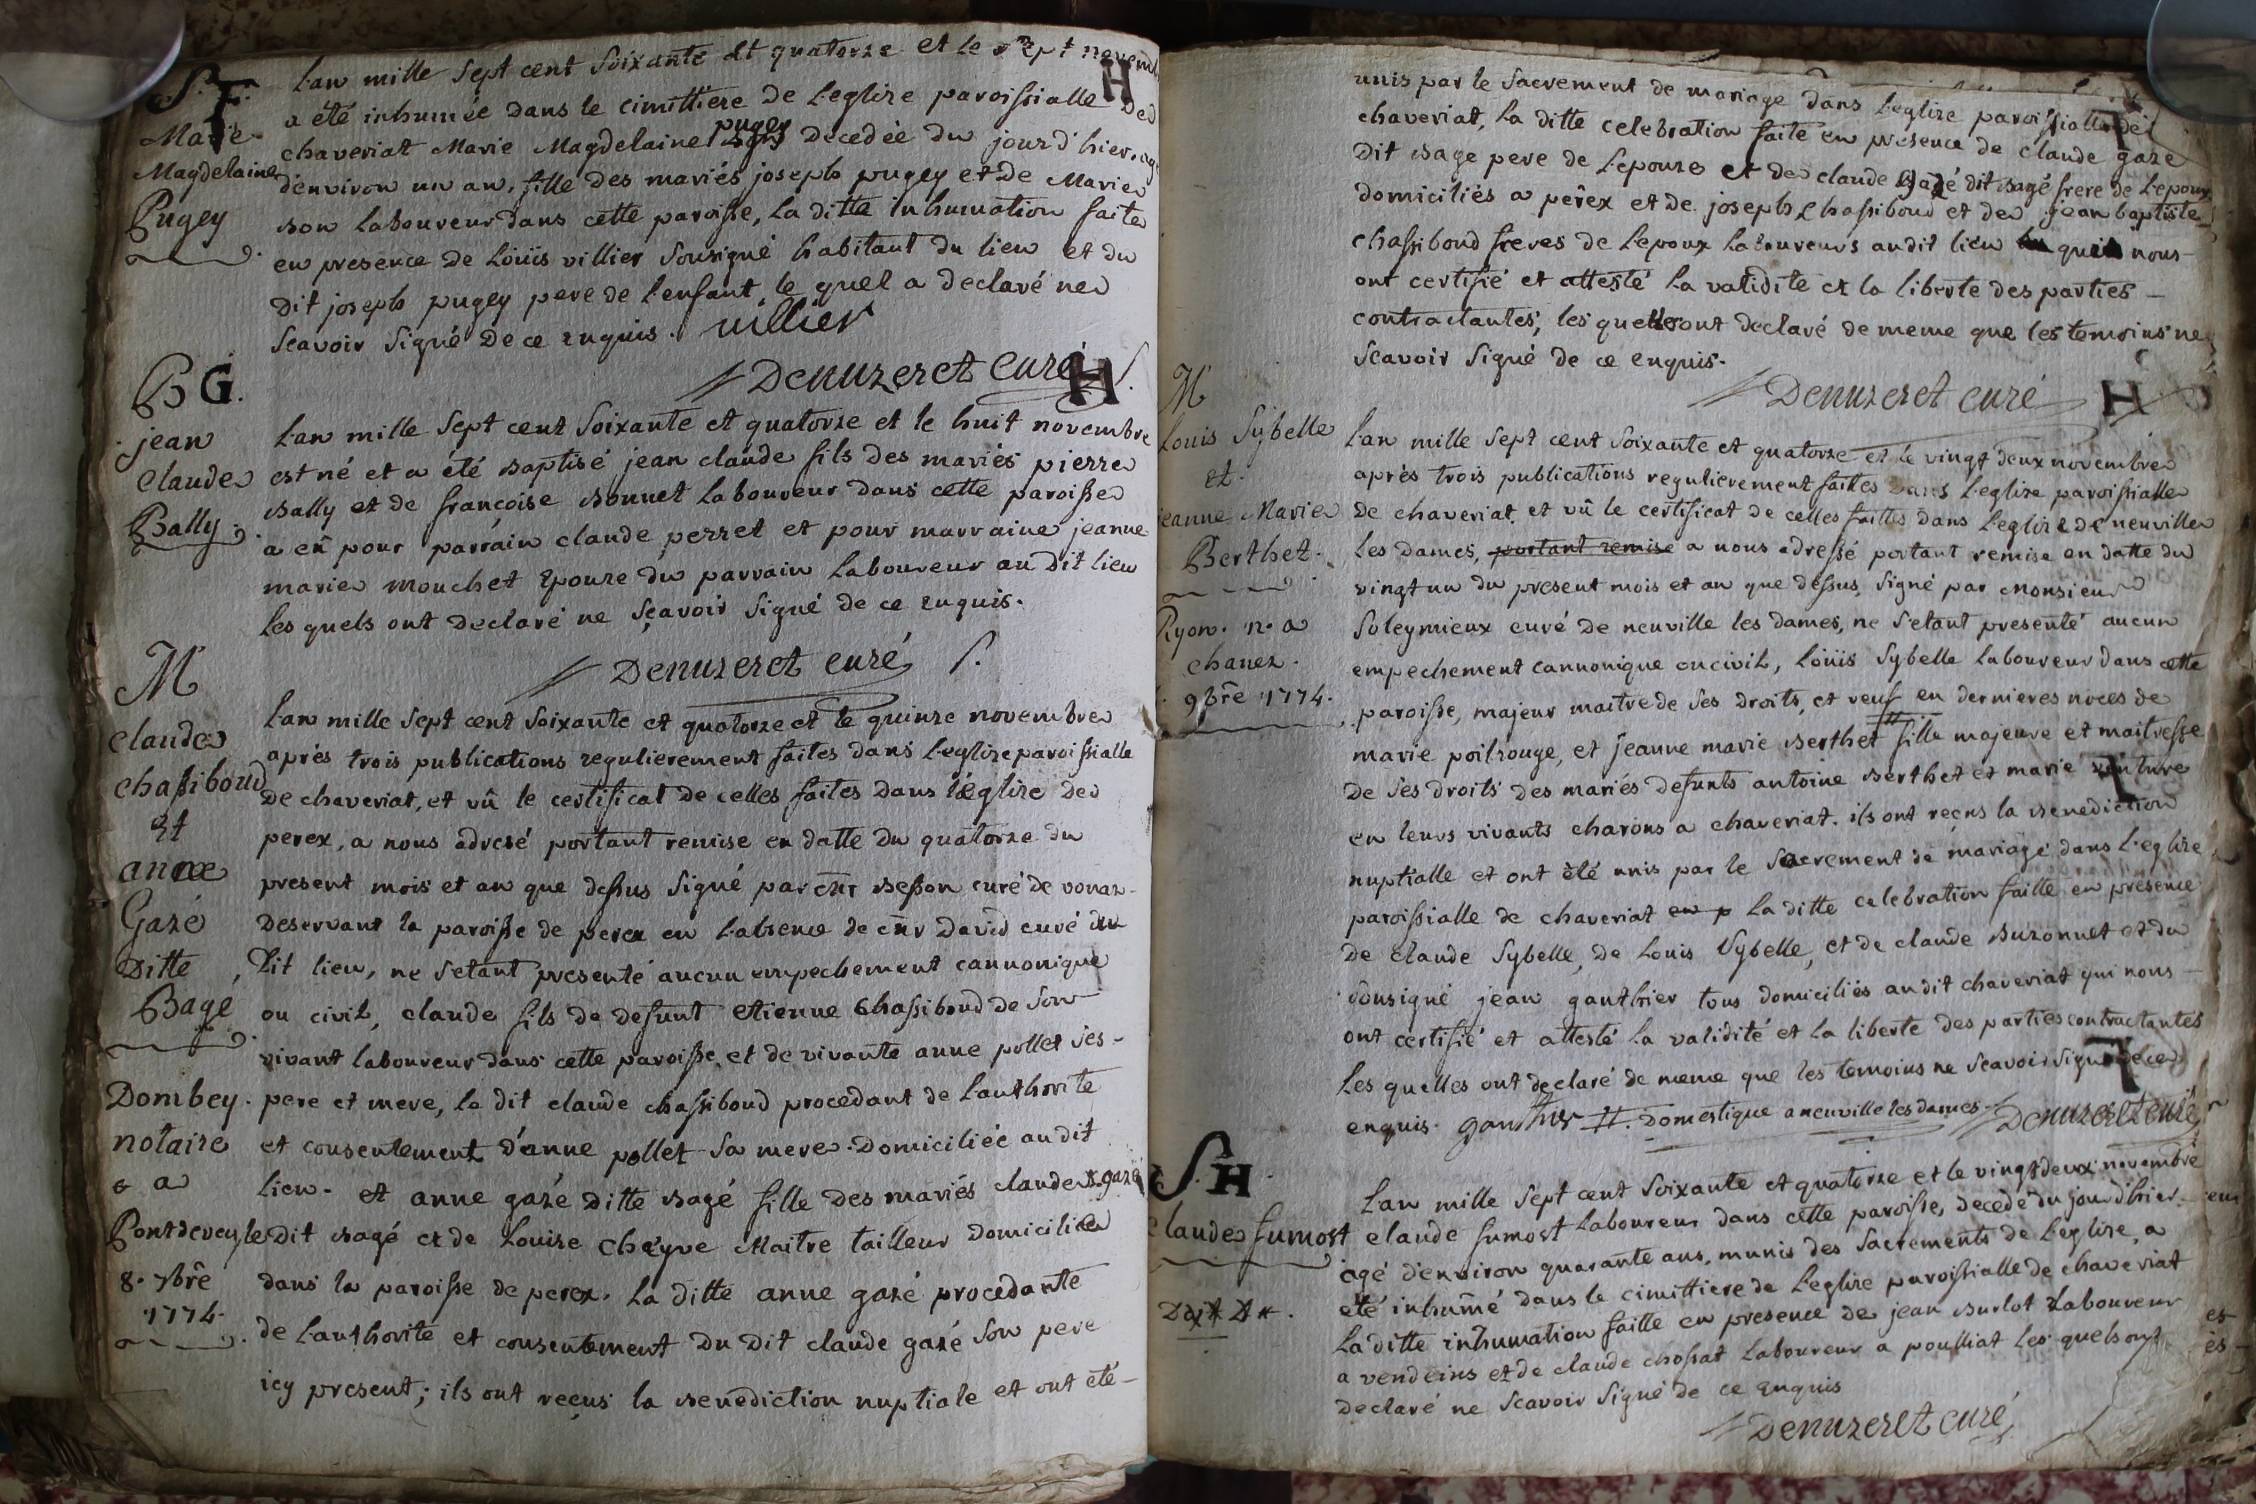 S. F.
Marie
Magdelaine
Pugey
L'an mille sept cent soixante et quatorze et le sept novemb
a été inhumée dans le cimittiere de L'eglize paroissialle de
chaveriat Marie Magdelaine pugey decedée du jourd'hier, agé
d'environ un an, fille des mariés joseph pugey et de Marie
bon Laboureur dans cette paroisse, La ditte inhumation faite
en presence de Loüis villier sousigné habitant du lieu et du
dit joseph pugey pere de l'enfant, le quel a declavé ne
scavoir signé de ce enquis. villier
Denuzeret curé H
B G.
jean
claude
Bally
L'an mille sept cent soixante et quatorze et le huit novembre
est né et a été baptisé jean claude fils des mariés pierre
Bally et de francoise bonnet laboureur dans cette paroisse
a eû pour parrain claude perret et pour marraine jeanne
marie mouchet epouze du parrain laboureur au dit lieu
les quels ont declaré ne sçavoir signé de ce enquis.
Denuzeret curé
M
claude
chassiboud
et
anne
Gazé
ditte
Bagé
Dombey
notaire
a
Pontdeveyle
8. 7bre
1774.
L'an mille sept cent soixante et quatorze et le quinze novembre
après trois publications regulierement faites dans L'eglize paroissialle
de chaveriat, et vû le certificat de celles faites dans l'église de
perex, a nous adresé portant remise en datte du quatorze du
present mois et an que dessus signé par besson curé de vonaz
deservant la paroisse de perex en L'absence de david curé du
dit lieu, ne s'etant presenté aucun empechement cannonique
ou civil, claude fils de defunt etienne chassiboud de son
vivant laboureur dans cette paroisse et de vivante anne pollet ses
pere et mere, le dit claude chassiboud procedant de L'authorité
et consentement d'anne pollet sa mere domiciliée au dit
lieu. et anne gazé ditte bagé fille des mariés claude gazé
dit bagé et de Louize cheyve Maitre tailleur domicilié
dans la paroisse de perex. La ditte anne gazé procedante
de L'authorité et consentement du dit claude gazé son pere
icy present; ils ont reçus la benediction nuptiale et ont été
unis par le sacrement de mariage dans L'eglize paroissialle de
chaveriat, La ditte celebration faite en présence de claude gaze
dit bage pere de L'epouze et de claude gazé dit bagé frere de L'epoux
domiciliés a pêrex et de joseph chassiboud et de jean baptiste
chassiboud freres de L'epoux laboureurs audit lieu qui nous
ont certifié et attesté la validité et la liberte des parties
contractantes, les quelles ont declaré de meme que les temoins ne
scavoir signé de ce enquis.
Denuzeret curé H
M
Louis Sybelle
et
jeanne Marie
Berthet.
Ryon. n. a
chanez.
9bre 1774.
L'an mille sept cent soixante et quatorze et le vingt deux novembre
après trois publications regulièrement faites dans L'eglize paroissialle
de chaveriat, et vû le certificat de celles faittes dans L'eglize de neuville
les dames, portant remise a nous adressé portant remise en datte du
vingt un du present mois et an que dessus, signé par monsieur
soleymieux curé de neuville les dames, ne s'etant presenté aucun
empechement cannonique ou civil, Loüis Sybelle laboureur dans cette
paroisse, majeur maitre de ses droits, et veuf en dernieres noces de
marie poilrouge, et jeanne marie berthet fille majeure et maitresse
de ses droits des mariés defunts antoine berthet et marie
en leurs vivants charons a chaveriat. ils ont reçus la benediction
nuptialle et ont été unis par le sacrement de mariage dans L'eglize
paroissialle de chaveriat en p La ditte celebration faitte en presence
de claude Sybelle, de Louis Sybelle, et de claude buzonnet et du
sousigné jean gauthier tous domiciliés audit chaveriat qui nous
ont certifié et attesté la validité et la liberte des parties contractantes
Les quelles ont declaré de meme que les temoins ne scavoir signé de ce
enquis. gauthier #. domestique a neuville les dames. Denuzeret curé
S. H
claude fumost
L'an mille sept cent soixante et quatorze et le vingt deux novembre
claude fumost laboureur dans cette paroisse, decedé du jourd'hier
agé d'environ quarante ans, munis des sacrements de L'eglize, a
eté inhumé dans le cimittiere de L'eglize paroissialle de chaveriat
La ditte inhumation faitte en presence de jean burlot Laboureur
a vendeins et de claude chossat laboureur a poulliat les quels ont
declaré ne scavoir signé de ce enquis
Denuzeret curé